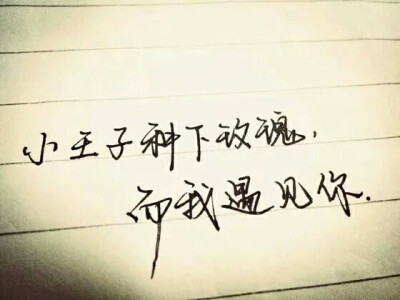 小王子种下玫瑰，
而我遇见你.